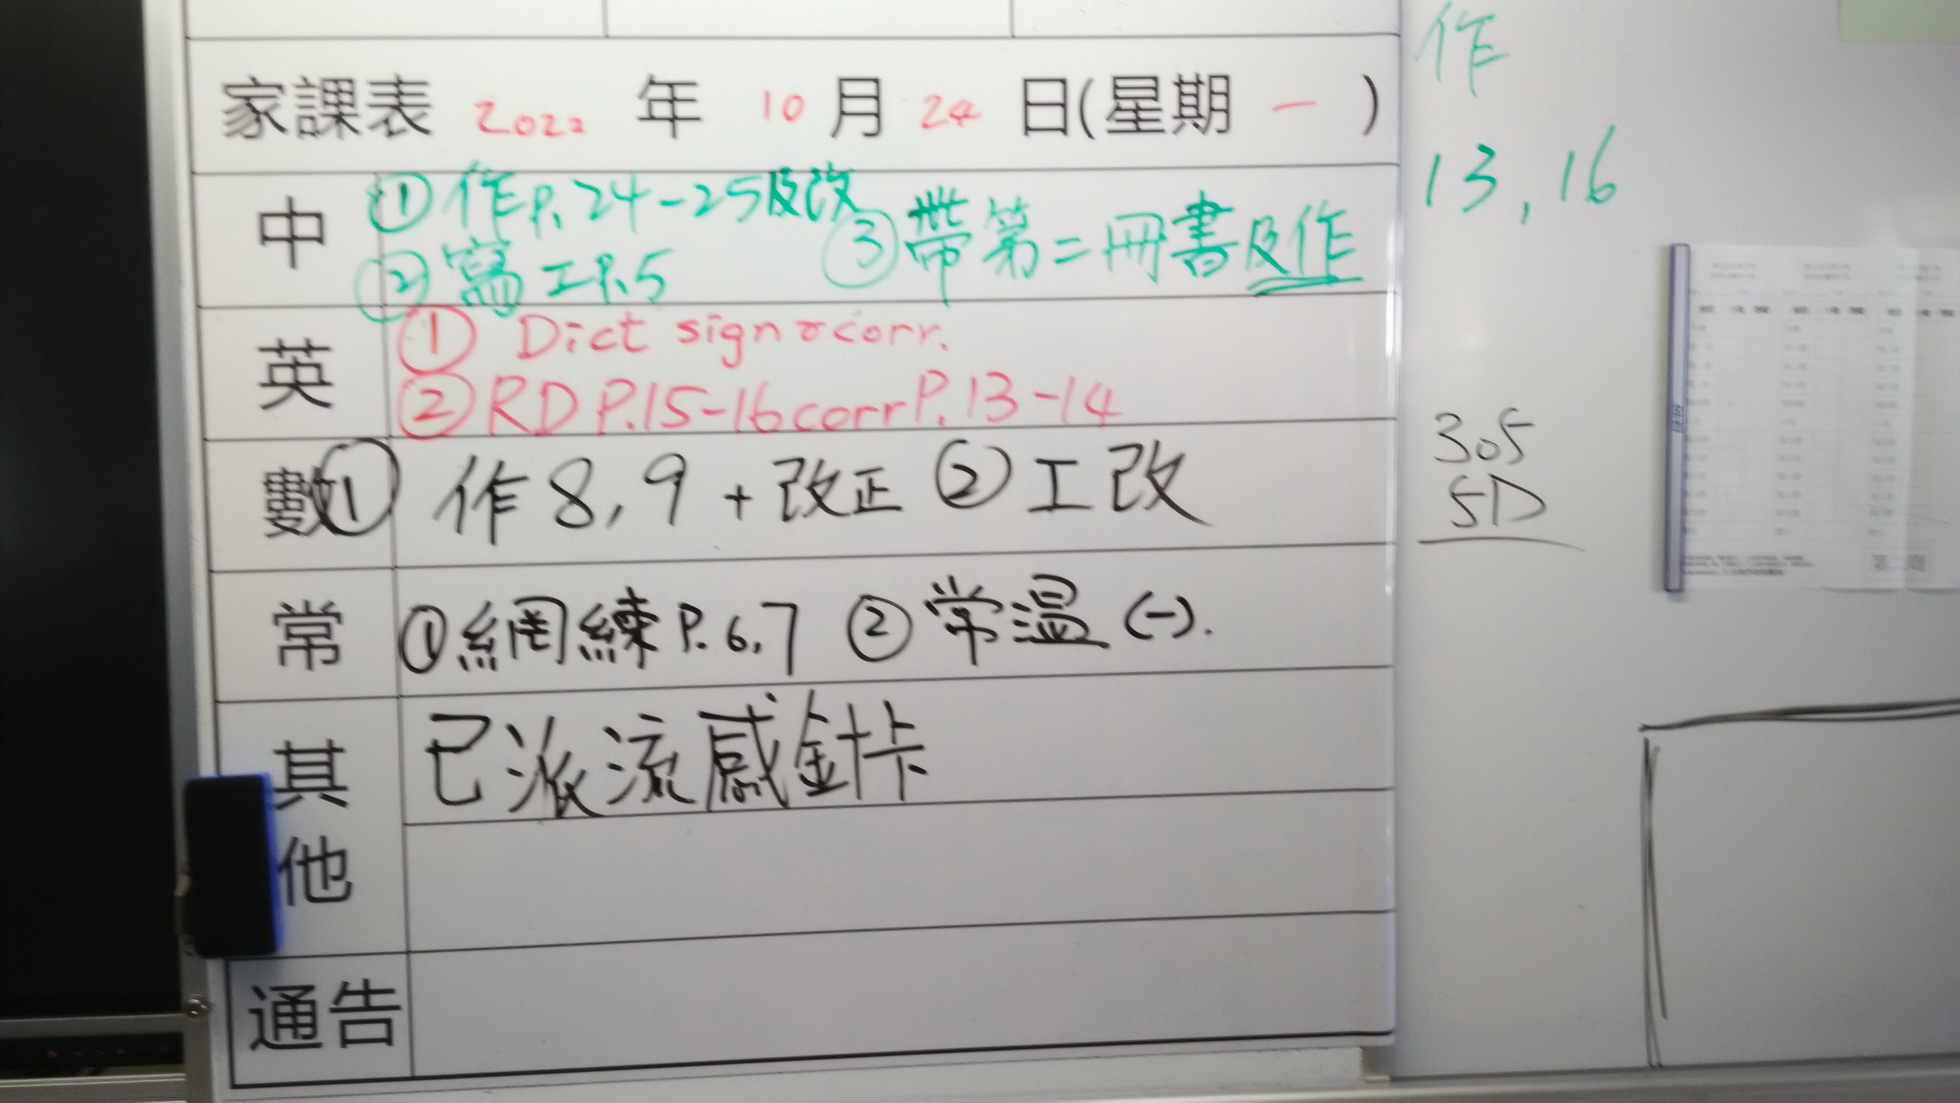 家課表 2022 年 10 月 24 日(星期 一 )
中 ① 作P.24-25及改
② 寫工P.5 ③ 帶第二冊書及作
英 ① Dict sign & corr.
② RD P.15-16 corr P.13-14
數 ① 作 8, 9 + 改正 ② 工改
常 ① 網練 P.6,7 ② 常溫 (一).
其他 已派流感針卡
通告
作
13, 16
305
5D